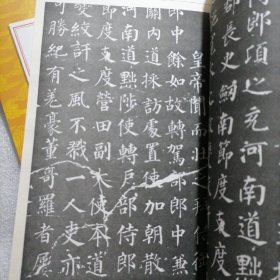 郎頃之充河南道
長史劍南節度支度
皇帝聞而壯
郎中餘如故轉駕部郎中兼
關內道採訪處置使加朝散
河南道黜陟使轉戶部侍郎
節度支度營田副大使本道
絞訐之風不戮一人吏亦
可勝紀有羌豪董哥羅者屢